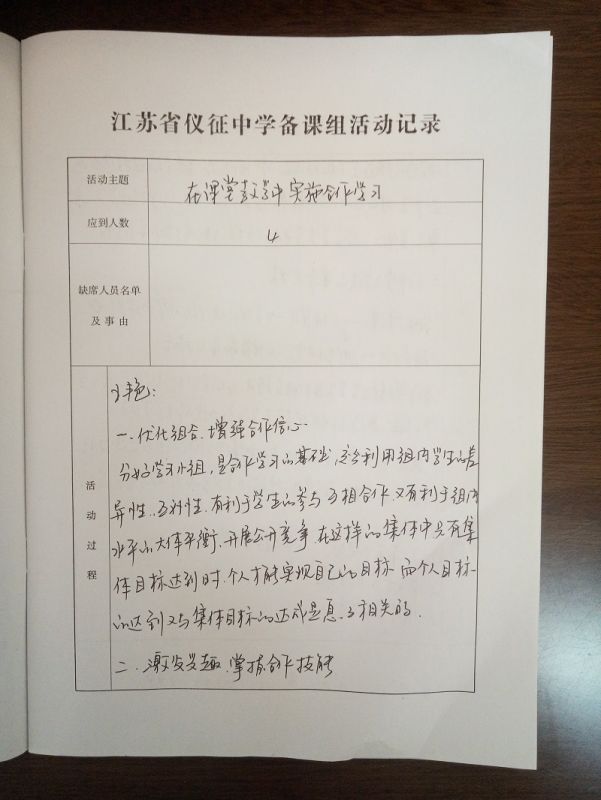 江苏省仪征中学备课组活动记录
活动主题
在课堂教学中实施合作学习
应到人数
4
缺席人员名单
及事由
活动过程
一.优化组合、增强合作信心
分好学习小组，是合作学习的基础，充分利用组内学生的差
异性、互补性，有利于学生的参与互相合作，又有利于组内
水平的大体平衡，开展公开竞争 在这样的集体中只有集
体目标达到时，个人才能实现自己的目标 而个人目标
的达到又与集体目标的达成是息息相关的.
二.激发兴趣、掌握合作技能